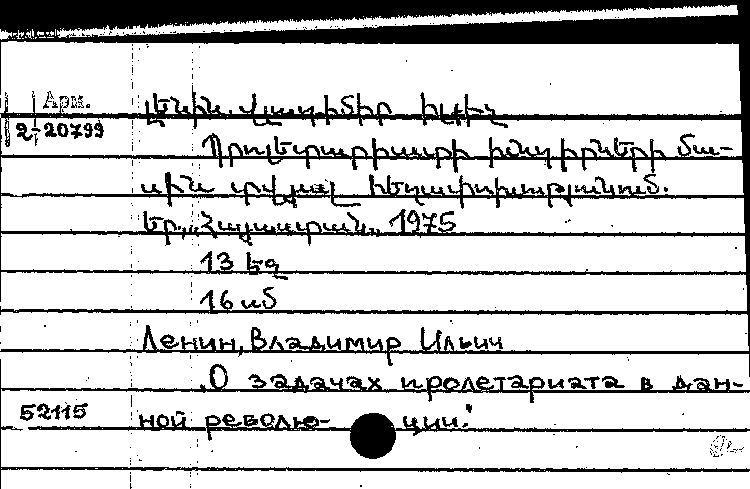 Арм.
2-20799
Լենին, Վլադիմիր Իլյիչ
Պրոլետարիատի խնդիրների մա-
սին տվյալ հեղափոխությունում.
Եր., „Հայաստան„, 1975
13 եզ
16 սմ
Ленин, Владимир Ильич
„О задачах пролетариата в дан-
52115
ной револю- ции."